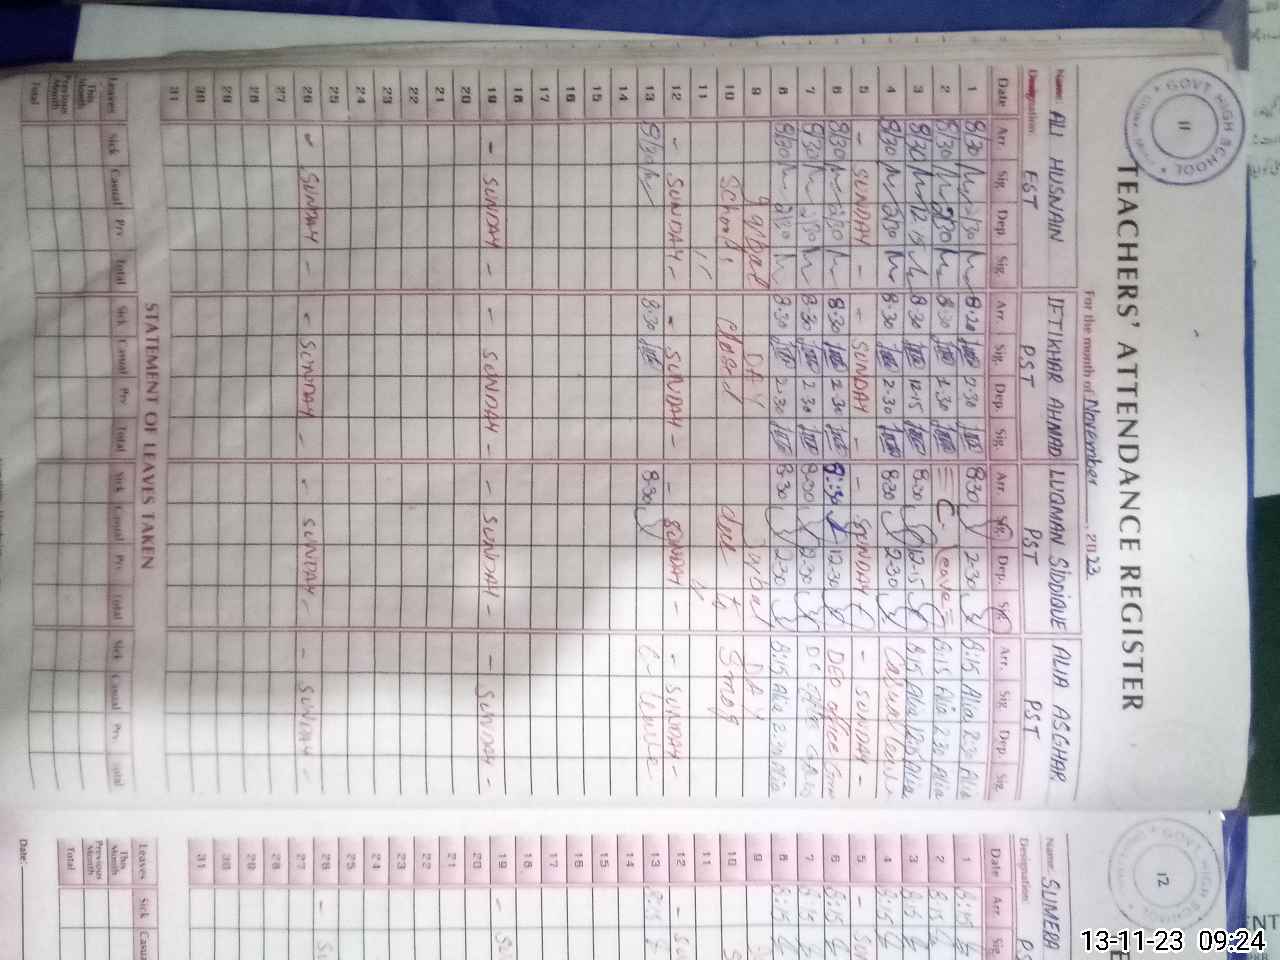 GOVT HIGH SCHOOL
11
TEACHERS' ATTENDANCE REGISTER
For the month of November 2023
Name: ALI HUSNAIN IFTIKHAR AHMAD LUQMAN SIDDIQUE ALIA ASGHAR
Designation: EST PST PST PST
Date Arr. Sig. Dep. Sig. Arr. Sig. Dep. Sig. Arr. Sig. Dep. Sig. Arr. Sig. Dep. Sig.
1 8/30 2/30 8.20 2.30 8.30 2.30 8:15 Alia 2:30 Alia
2 8/30 2/30 8.30 2.30 = C. Leave = 8:15 Alia 2:30 Alia
3 8/30 12.15 8.30 12.15 8.30 12.15 8:15 Alia 12:15 Alia
4 8/30 2/30 8.30 2.30 8.30 2.30 Casual leave
5 - SUNDAY - - SUNDAY - - SUNDAY - - SUNDAY -
6 8/30 2/30 8.30 2.30 8:30 2.30 DEO office
7 8/30 2/30 8.30 2.30 8.30 2.30
8 8/30 2/30 8.30 2.30 8.30 2.30 8:15 Alia 2:30 Alia
9 Iqbal DAY Iqbal DAY
10 Schools closed due to Smog
11 " "
12 - SUNDAY - - SUNDAY - - SUNDAY - - SUNDAY -
13 8/30 8.30 8.30 C-leave
14
15
16
17
18
19 - SUNDAY - - SUNDAY - - SUNDAY - - SUNDAY -
20
21
22
23
24
25
26 - SUNDAY - - SUNDAY - - SUNDAY - - SUNDAY -
27
28
29
30
31
STATEMENT OF LEAVES TAKEN
Leaves Sick Casual Prv Total Sick Casual Prv Total Sick Casual Prv Total Sick Casual Prv Total
This Month
Previous Month
Total
12
Name: SUMERA
Designation:
Date Arr. Sig.
1 8:15
2 8:15
3 8:15
4 8:15
5 -
6 8:15
7 8:15
8 8:15
9
10
11
12 -
13 8:15
14
15
16
17
18
19 -
20
21
22
23
24
25
26 -
27
28
29
30
31
Leaves Sick Casual
This Month
Previous Month
Total
Date:
13-11-23 09:24